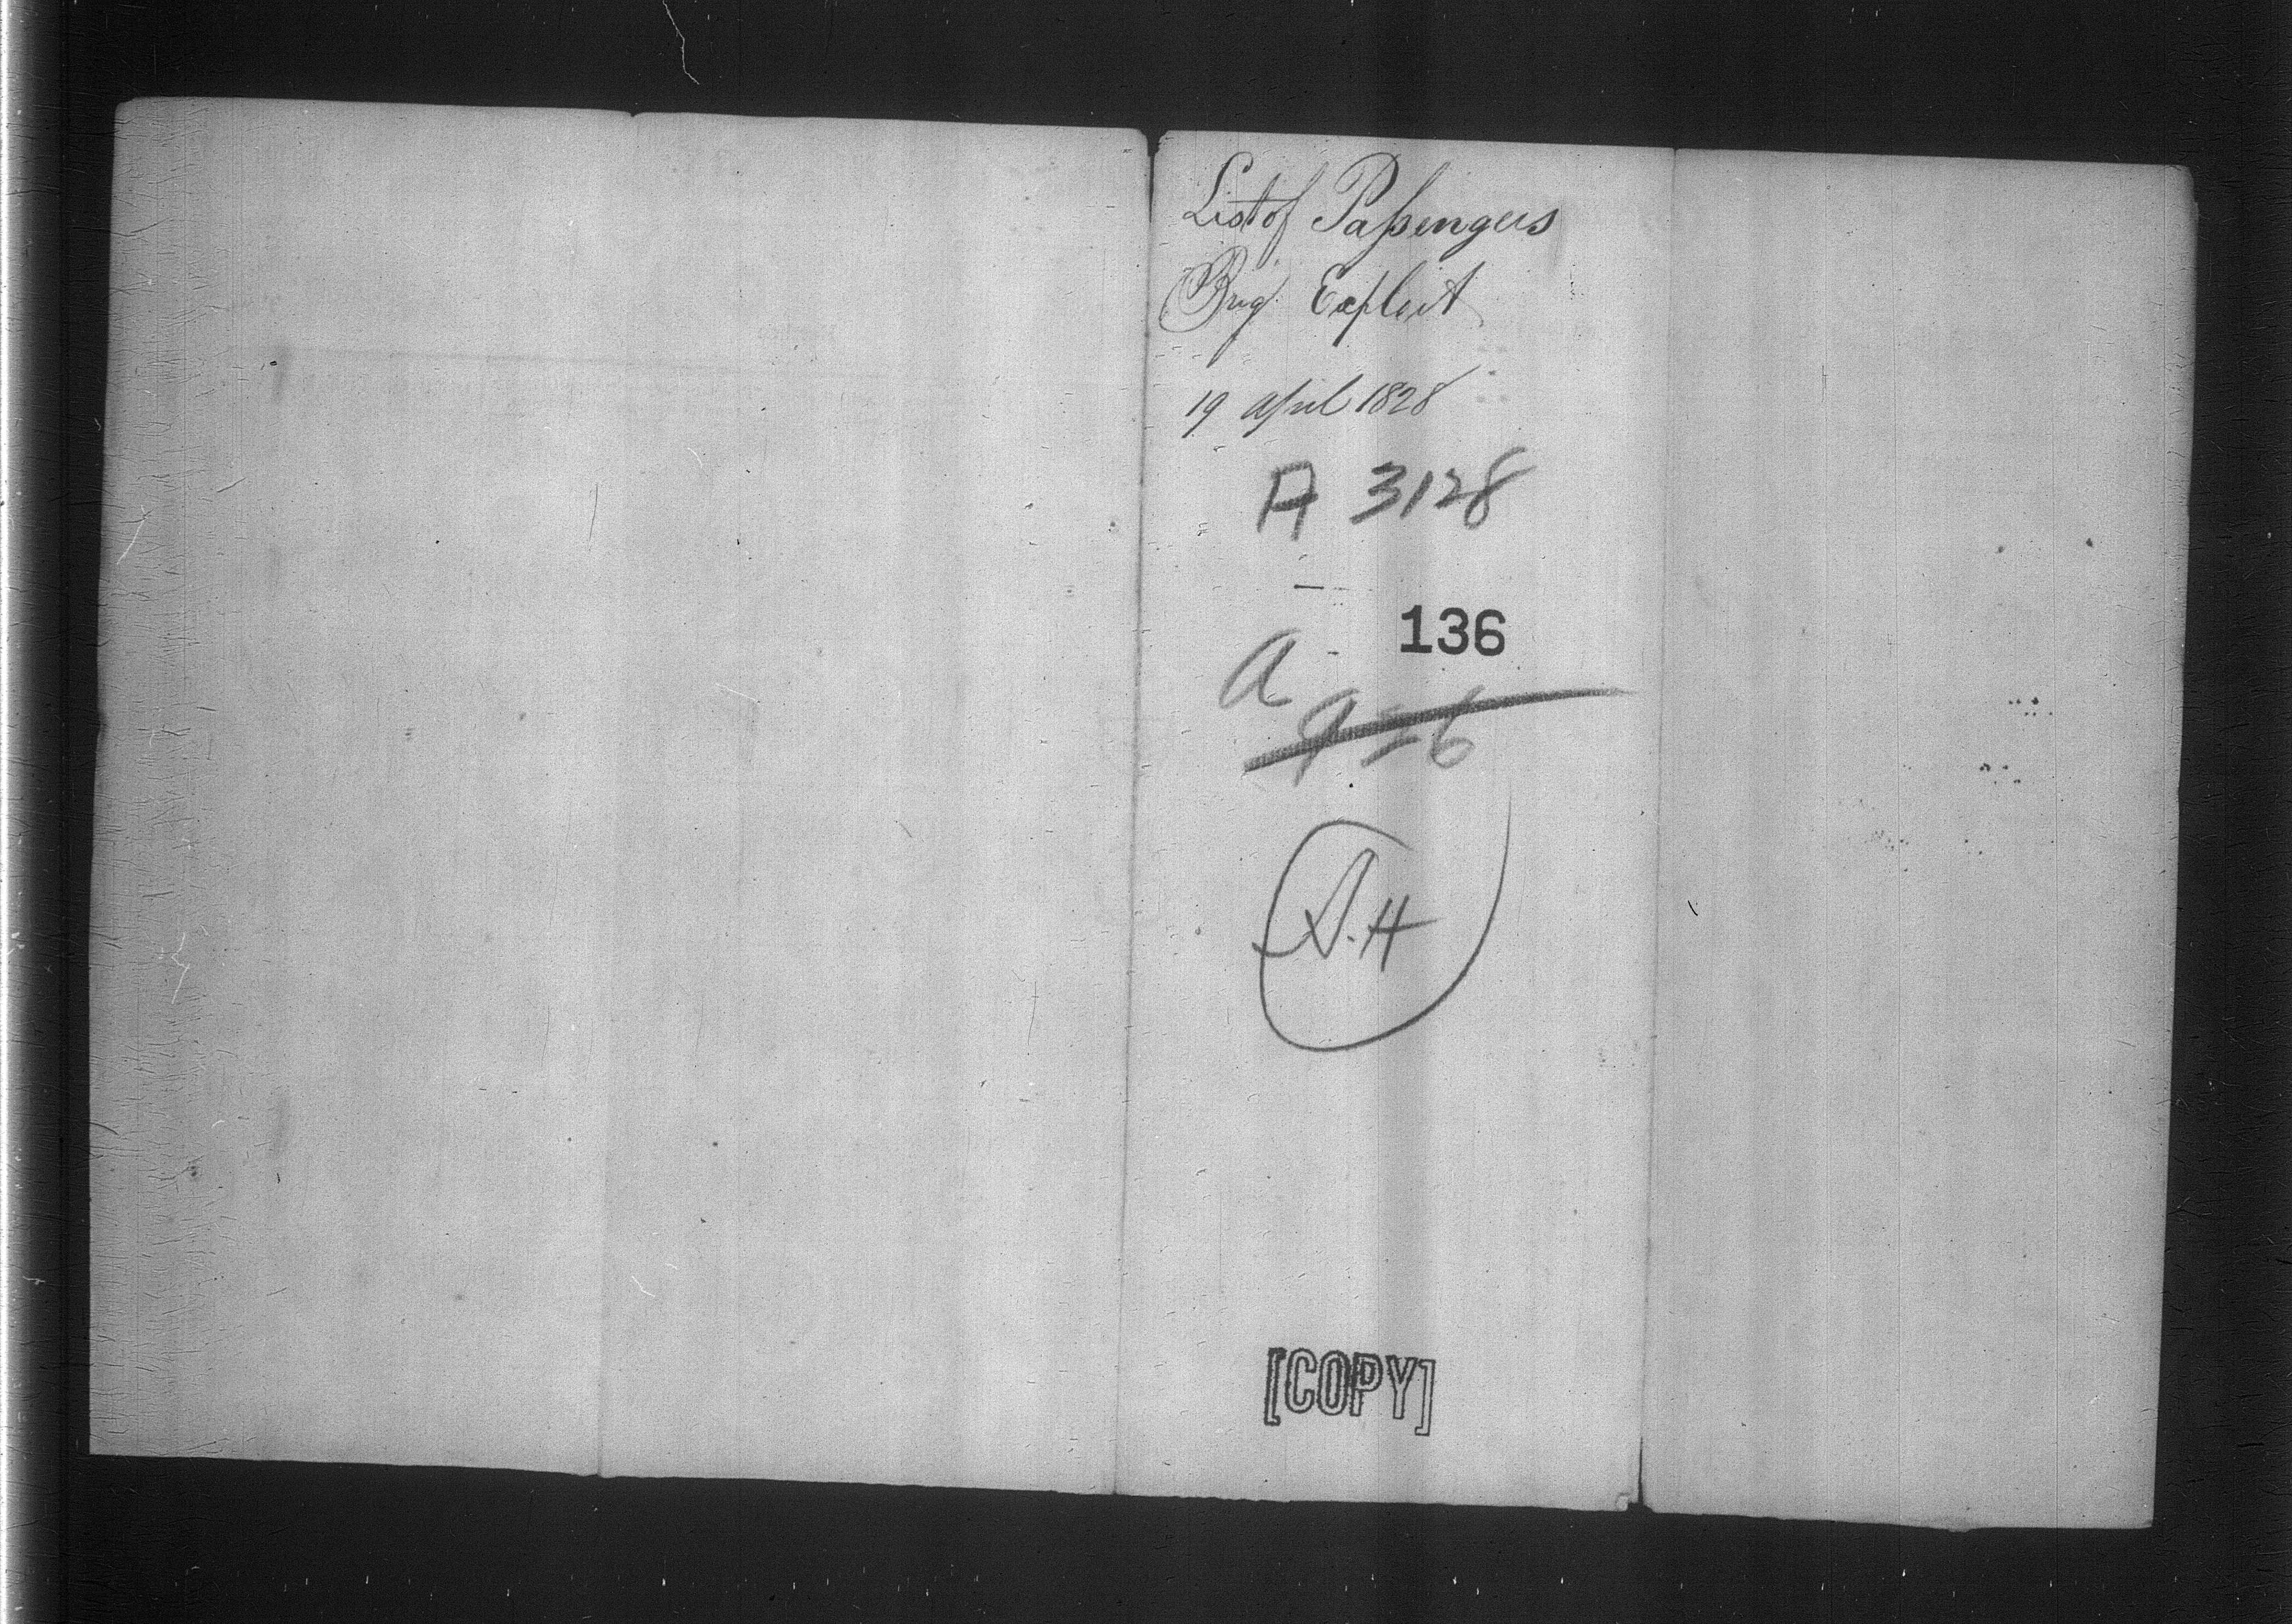 List of Passengers
Brig Exploit
19 April 1828
A 3128
136
a
S.H
[COPY]